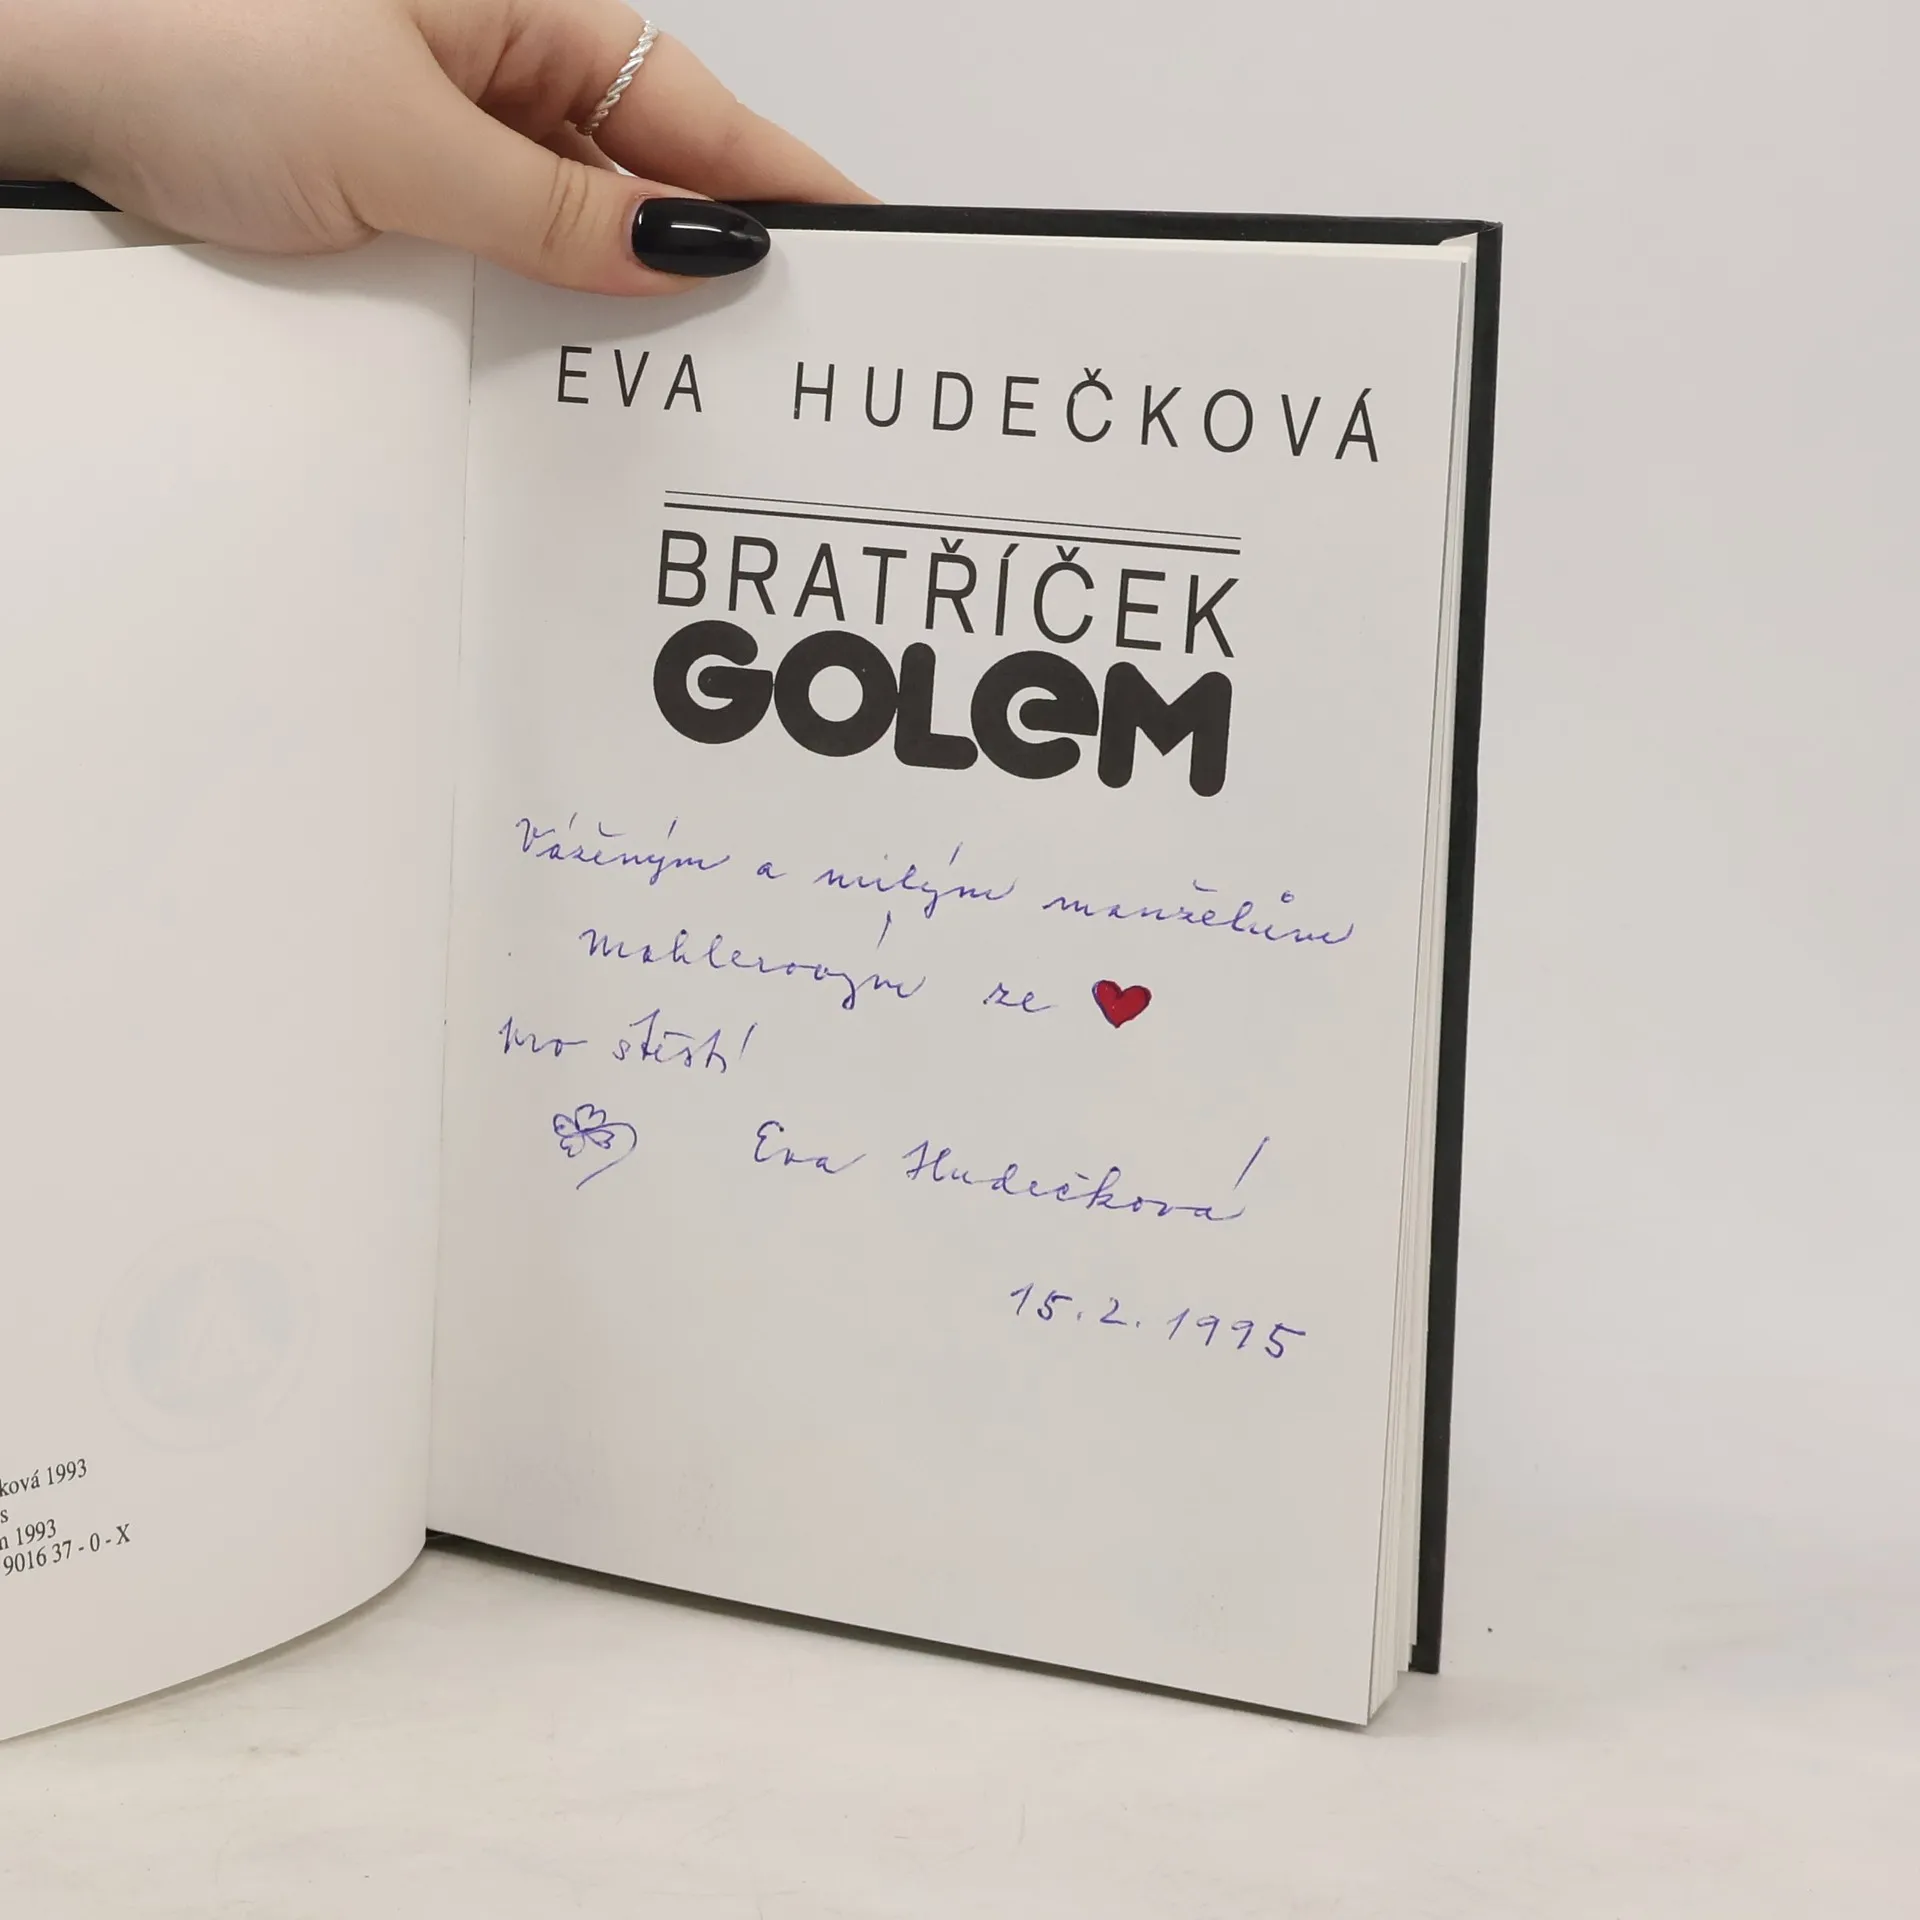 EVA HUDEČKOVÁ
BRATŘÍČEK
GOLEM
Váženým a milým manželům
Mahlerovým ze ♥
pro štěstí
Eva Hudečková
15.2.1995
ková 1993
s
n 1993
9016 37 - 0 - X